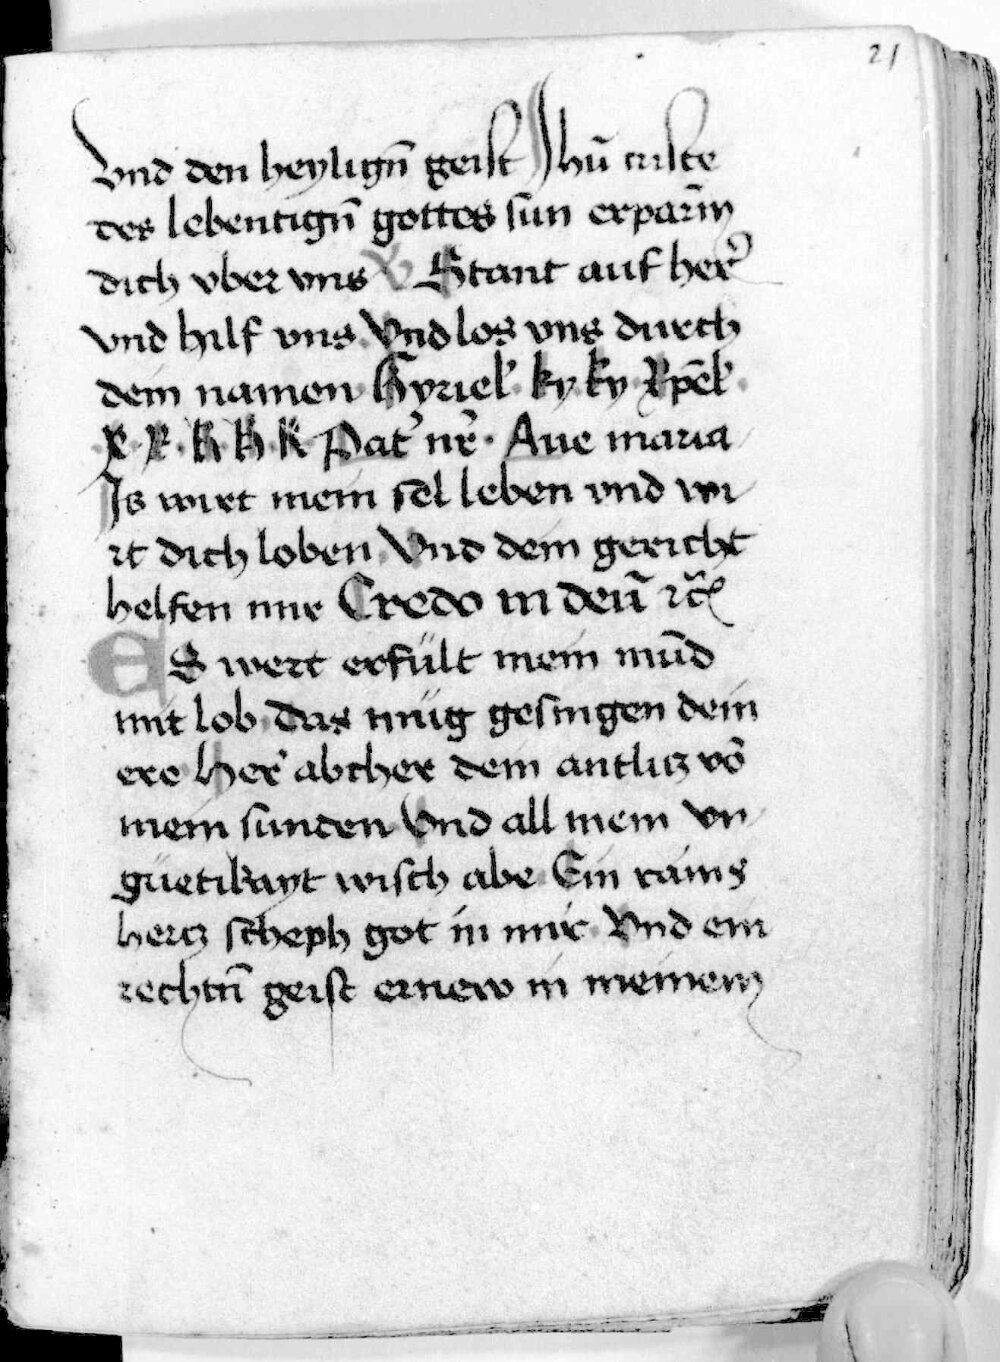 21
Vnd den heylign̄ geist Jhū criste
des lebentign̄ gottes sun erparm̄
dich vber vns ℣ Stant auf her̓
vnd hilf vns Vnd los vns durch
dein namen Kyriel̓ ky ky Xpēl̓
X X K K K Pat̓ nr̄ Aue maria
Is wirt mein sēl leben vnd wi
rt dich loben Vnd dein gericht
helfen mir Credo in deū ⁊c̄
ES wert erfült mein mūd
mit lob Das müg gesingen dein
ere Her̓ abcher dein antlicz vō
mein sunden Vnd all mein vn
güetikayt wisch abe Ein rains
hercz scheph got in mir Vnd ein
rechtn̄ geist ernew in meinem